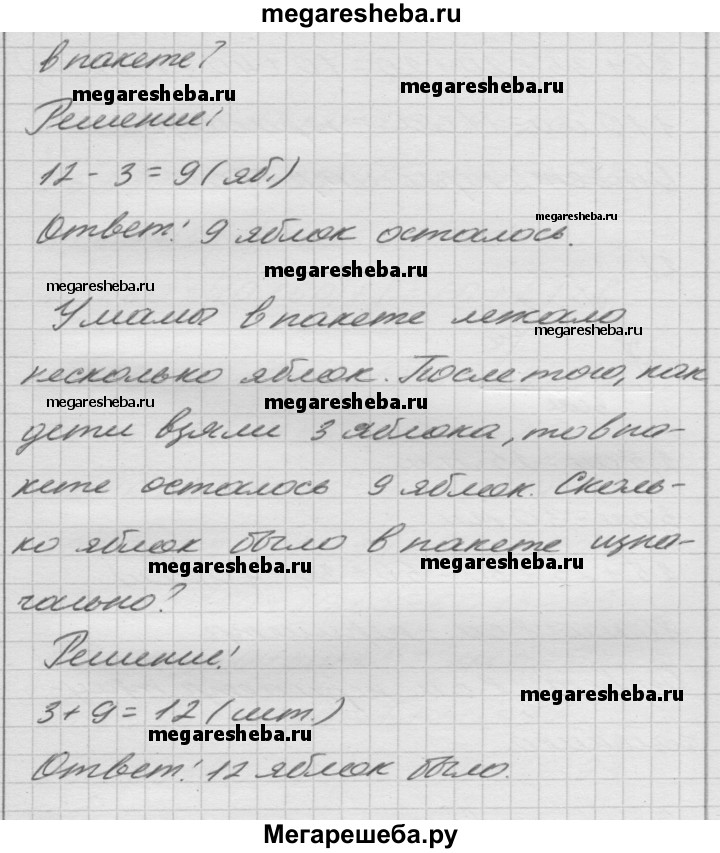 megaresheba.ru
в пакете?
megaresheba.ru
megaresheba.ru
Решение:
12 - 3 = 9 (яб.)
megaresheba.ru
Ответ: 9 яблок осталось.
megaresheba.ru
megaresheba.ru
У мамы в пакете лежало
megaresheba.ru
несколько яблок. После того, как
megaresheba.ru
megaresheba.ru
дети взяли 3 яблока, то в па-
кете осталось 9 яблок. Сколь-
ко яблок было в пакете изна-
megaresheba.ru
megaresheba.ru
чально?
Решение:
megaresheba.ru
3 + 9 = 12 (шт.)
megaresheba.ru
Ответ: 12 яблок было.
Мегарешеба.ру